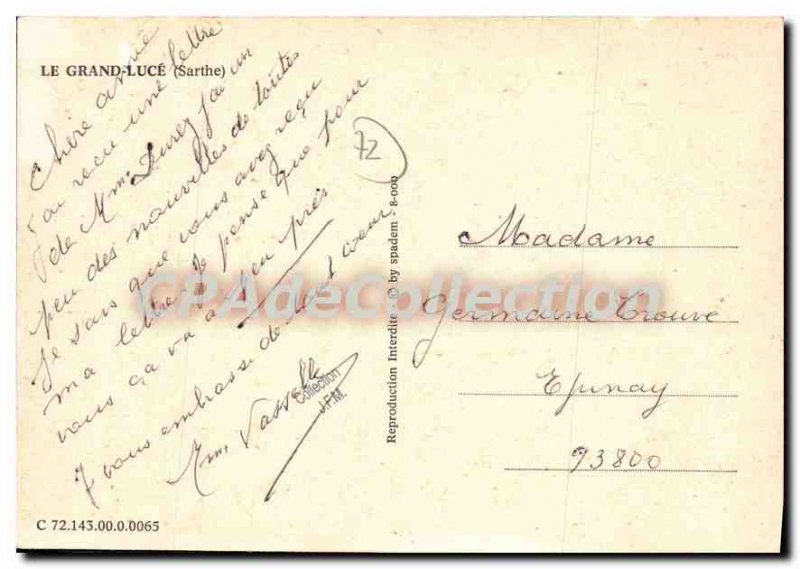 LE GRAND-LUCÉ (Sarthe)
Chère amie
J'ai reçu une lettre
de Mme j'ai un
peu des nouvelles de toutes
Je sais que vous avez reçu
ma lettre Je pense que pour
vous ça va a peu près
J vous embrasse de tout cœur
Mme
72
Reproduction Interdite - © by spadem - 8-000
Madame
Germaine Trouvé
Epinay
93800
CPAdeCollection
Collection
J.F.M.
C 72.143.00.0.0065